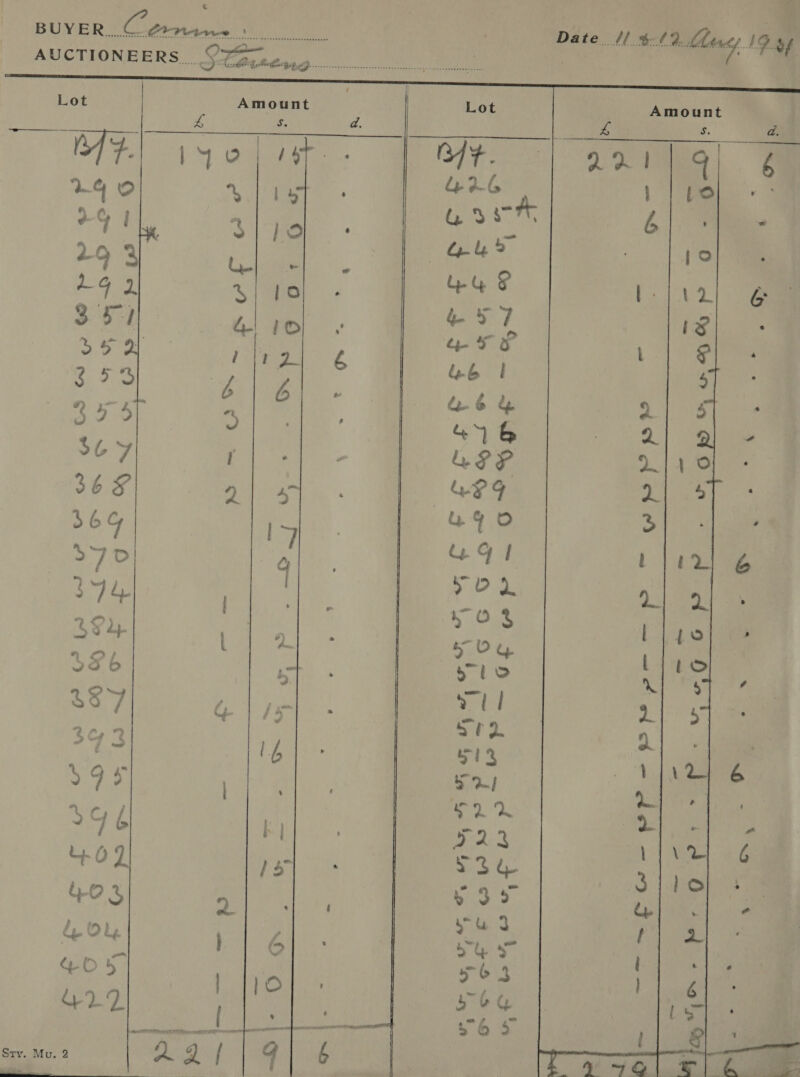 BUYER
AUCTIONEERS
Date 11 & 12 Aug 19
Lot Amount
£ s. d.
B/F. 170 15 .
290 3 15 .
291 3 10 .
293 4 . .
292 3 10 .
351 4 10 .
352 1 12 6
353 6 6 .
355 3 . .
367 1 . .
368 2 5 .
369 17 .
370 9 .
374 1 . .
384 1 2 .
386 5 .
387 4 15 .
393 16 .
395 1 . .
396 11 .
402 15 .
403 2 . .
404 1 6 .
405 1 10 .
422 1 . .
221 9 6
Sty. Mu. 2
Lot Amount
£ s. d.
B/F. 221 9 6
426 1 10 .
435A 6 . .
445 10 .
448 1 12 6
457 18 .
458 1 8 .
461 5 .
464 2 5 .
476 2 2 .
488 2 10 .
489 2 5 .
490 3 . .
491 1 12 6
502 2 2 .
503 1 10 .
504 1 10 .
510 2 5 .
511 2 5 .
512 2 . .
513 1 12 6
521 2 . .
522 2 . .
523 1 12 6
534 3 10 .
535 4 . .
543 1 2 .
545 1 . .
563 1 6 .
564 15 .
565 1 8 .
£ 279 5 6